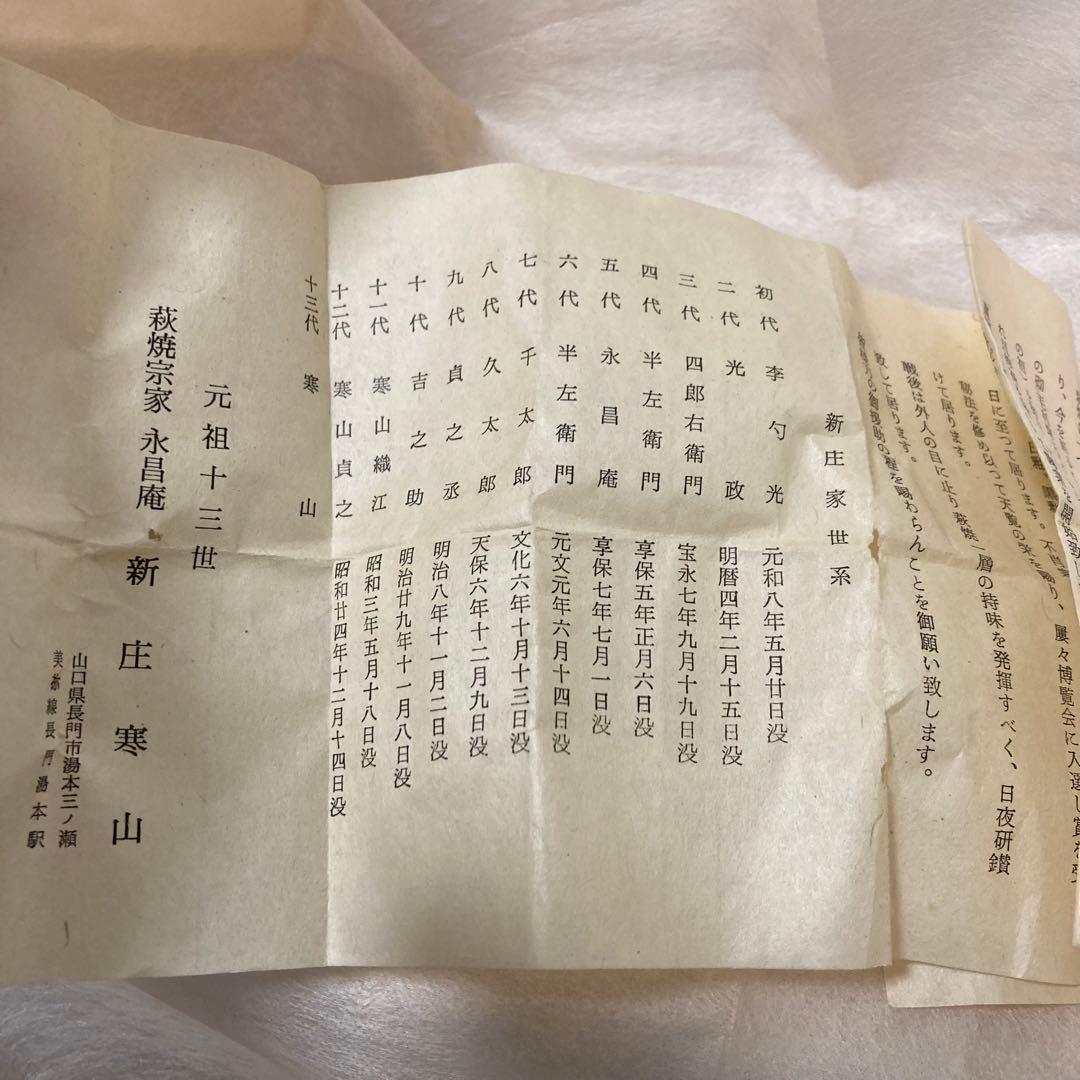 日に至って居ります。不
屢々博覧会に入選し賞を受
けて居ります。
戦後は外人の目に止り萩焼一層の持味を発揮すべく、日夜研鑽
致して居ります。
御援助の程を賜わらんことを御願い致します。
新庄家世系
初代 李勺光 元和八年五月廿日没
二代 光政 明暦四年二月十五日没
三代 四郎右衛門 宝永七年九月十九日没
四代 半左衛門 享保五年正月六日没
五代 永昌庵 享保七年七月一日没
六代 半左衛門 元文元年六月十四日没
七代 千太郎 文化六年十月十三日没
八代 久太郎 天保六年十二月九日没
九代 貞之丞 明治八年十一月二日没
十代 吉之助 明治廿九年十一月八日没
十一代 寒山織江 昭和三年五月十八日没
十二代 寒山貞之 昭和廿四年十二月十四日没
十三代 寒山
元祖十三世
萩焼宗家 永昌庵 新庄寒山
山口県長門市湯本三ノ瀬
美祢線長門湯本駅